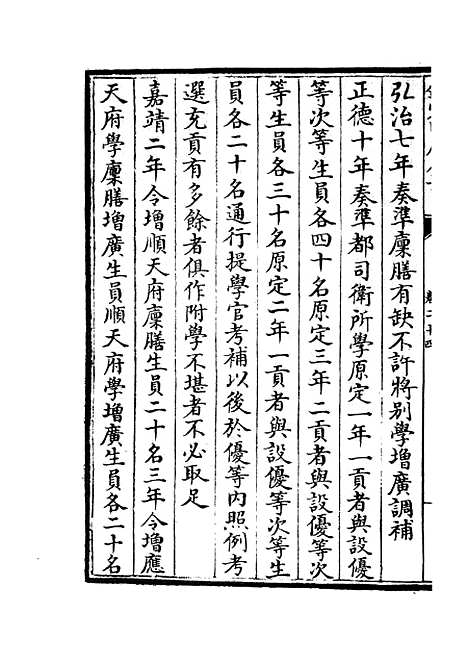 弘治七年奏準廩膳有缺不許將别學增廣調補
正德十年奏準都司衛所學原定一年一貢者與設優
等次等生員各四十名原定三年二貢者與設優等次
等生員各三十名原定二年一貢者與設優等次等生
員各二十名通行提學官考補以後於優等内照例考
選充貢有多餘者俱作附學不堪者不必取足
嘉靖二年令增順天府廩膳生員二十名三年令增應
天府學廩膳增廣生員順天府學增廣生員各二十名